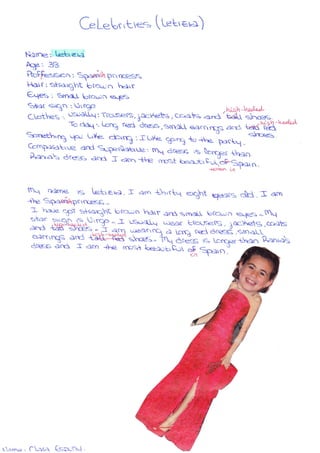 Celebrities (Letizia)
Name: Letizia
Age: 38
Proffession: Spanish princess
Hair: straight brown hair
Eyes: Small brown eyes
Star sign: Virgo
high-heeled
Clothes: Usually: Trousers, jackets, coats and tall shoes
high-heeled
To day: Long red dress, small earrings and tall red shoes
Something you like doing: I like going to the party.
Comparative and Superlative: My dress is longer than
Rania's dress and I am the most beautiful of Spain.
woman in
My name is Letizia. I am thirty eight years old. I am
the Spanish princess.
I have got straight brown hair and small brown eyes. My
star sign is Virgo. I usually wear trousers, jackets, coats
and tall shoes. I am wearing a long red dress, small
earrings and tall red shoes. My dress is longer than Rania's
dress and I am the most beautiful of Spain.
in